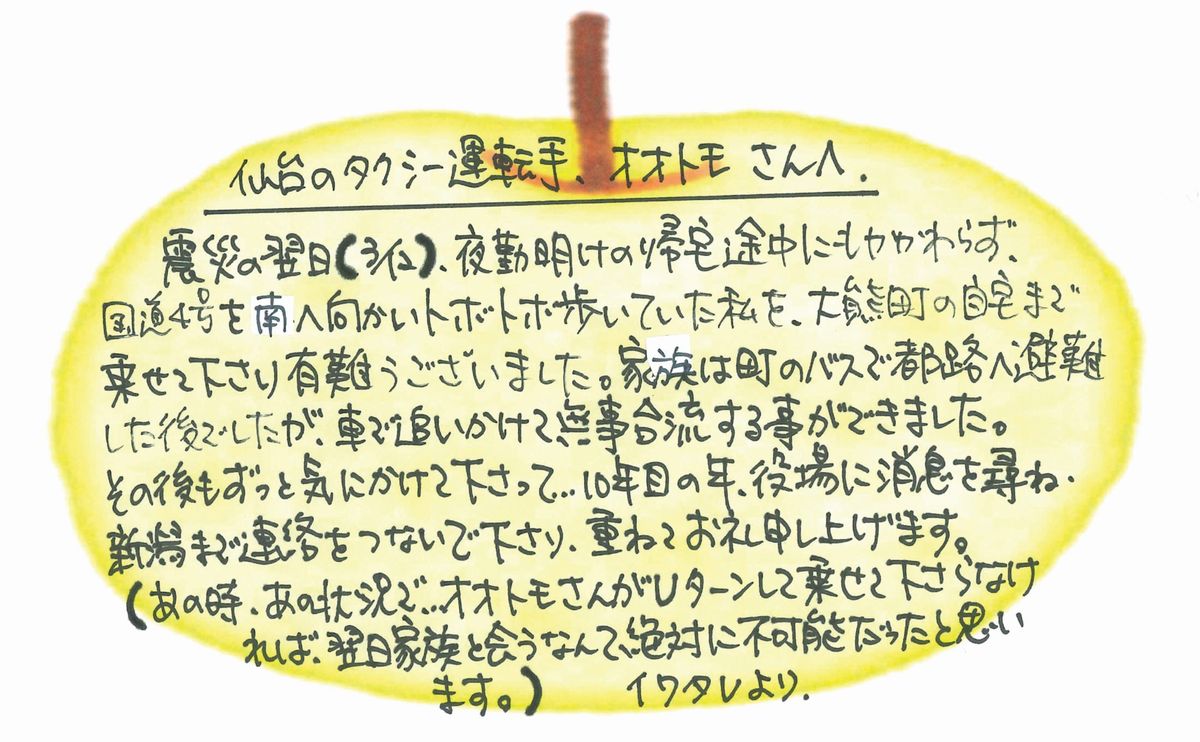 仙台のタクシー運転手、オオトモ さんへ.
震災の翌日(3/12)、夜勤明けの帰宅途中にもかかわらず、
国道4号を南へ向かいトボトボ歩いていた私を、大熊町の自宅まで
乗せて下さり有難うございました。家族は町のバスで都路へ避難
した後でしたが、車で追いかけて無事合流する事ができました。
その後もずっと気にかけて下さって…10年目の年、役場に消息を尋ね.
新潟まで連絡をつないで下さり、重ねてお礼申し上げます。
(あの時、あの状況で…オオトモさんがUターンして乗せて下さらなけ
れば、翌日家族と会うなんて、絶対に不可能だったと思い
ます。) イワタレより.